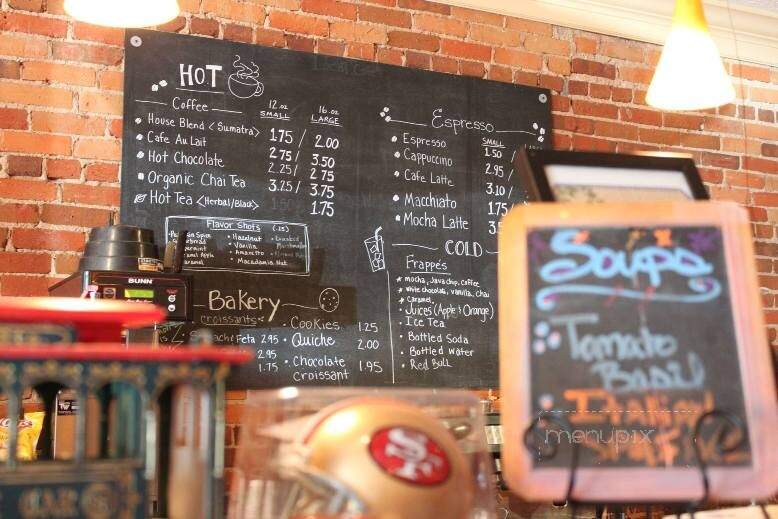 HOT
Coffee
12.oz
SMALL
16.oz
LARGE
House Blend <Sumatra> 1.75 / 2.00
Cafe Au Lait 2.75 / 3.50
Hot Chocolate 2.25 / 2.75
Organic Chai Tea 3.25 / 3.75
Hot Tea <Herbal/Black> 1.75
Flavor Shots
Spice
Hazelnut
Vanilla
Amaretto
Macadamia Nut
Apple
Espresso
SMALL
Espresso 1.50 /
Cappuccino 2.95 /
Cafe Latte 3.10 /
Macchiato
Mocha Latte
COLD
Frappe's
mocha, Java chip, coffee
white chocolate, vanilla, chai
caramel
Juices (Apple & Orange)
Ice Tea
Bottled Soda
Bottled water
Red Bull
Bakery
croissants
Feta 2.95
2.95
1.75
Cookies 1.25
Quiche 2.00
Chocolate
Croissant 1.95
BUNN
Soups
Tomato
Basil
Italian
SF
CAR
menupix